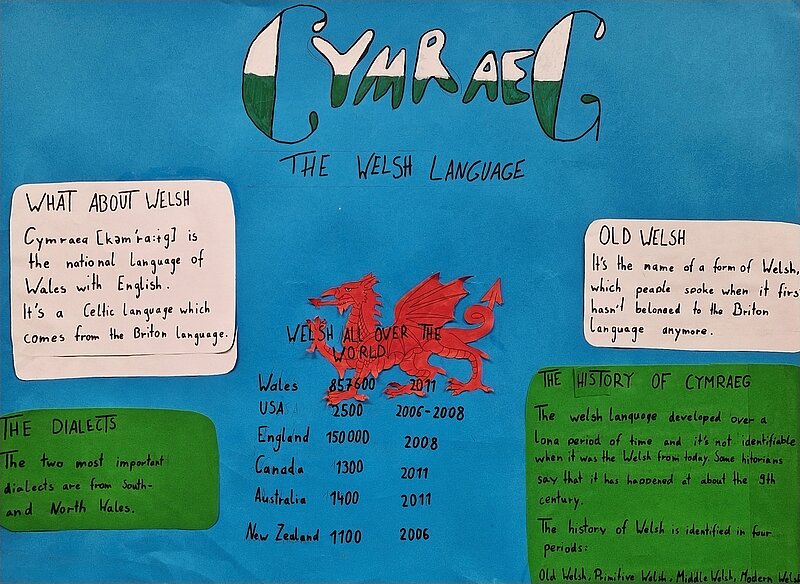 CYMRAEG
THE WELSH LANGUAGE
WHAT ABOUT WELSH
Cymraea [kəm'ra:ɨg] is
the national language of
Wales with English.
It's a Celtic language which
comes from the Briton language.
THE DIALECTS
The two most important
dialects are from South-
and North Wales.
WELSH ALL OVER THE
WORLD
Wales 857600 2011
USA 2500 2006-2008
England 150000 2008
Canada 1300 2011
Australia 1400 2011
New Zealand 1100 2006
OLD WELSH
It's the name of a form of Welsh,
which people spoke when it firs
hasn't belonged to the Briton
language anymore.
THE HISTORY OF CYMRAEG
The welsh language developed over a
long period of time and it's not identifiable
when it was the Welsh from today. Some hitorians
say that it has happened at about the 9th
century.
The history of Welsh is identified in four
periods:
Old Welsh, Primitive Welsh, Middle Welsh, Modern Wels